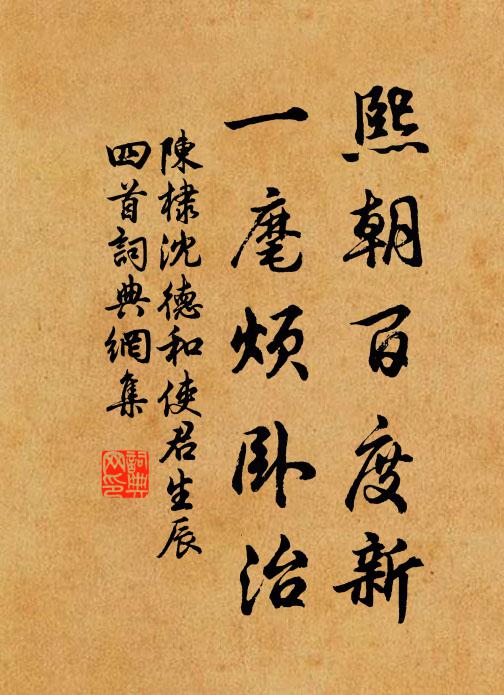 熙朝百度新
一麾煩卧治
陳棣沈德和使君生辰
四首詞典網集
詞典
网印